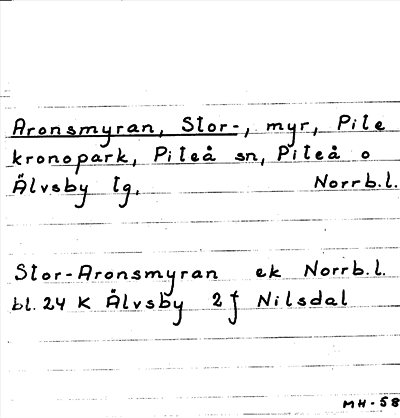 Aronsmyran, Stor-, myr, Pite
kronopark, Piteå sn, Piteå o
Älvsby tg, Norrb.l.
Stor-Aronsmyran ek Norrb.l.
bl. 24 K Älvsby 2 f Nilsdal
MH-58